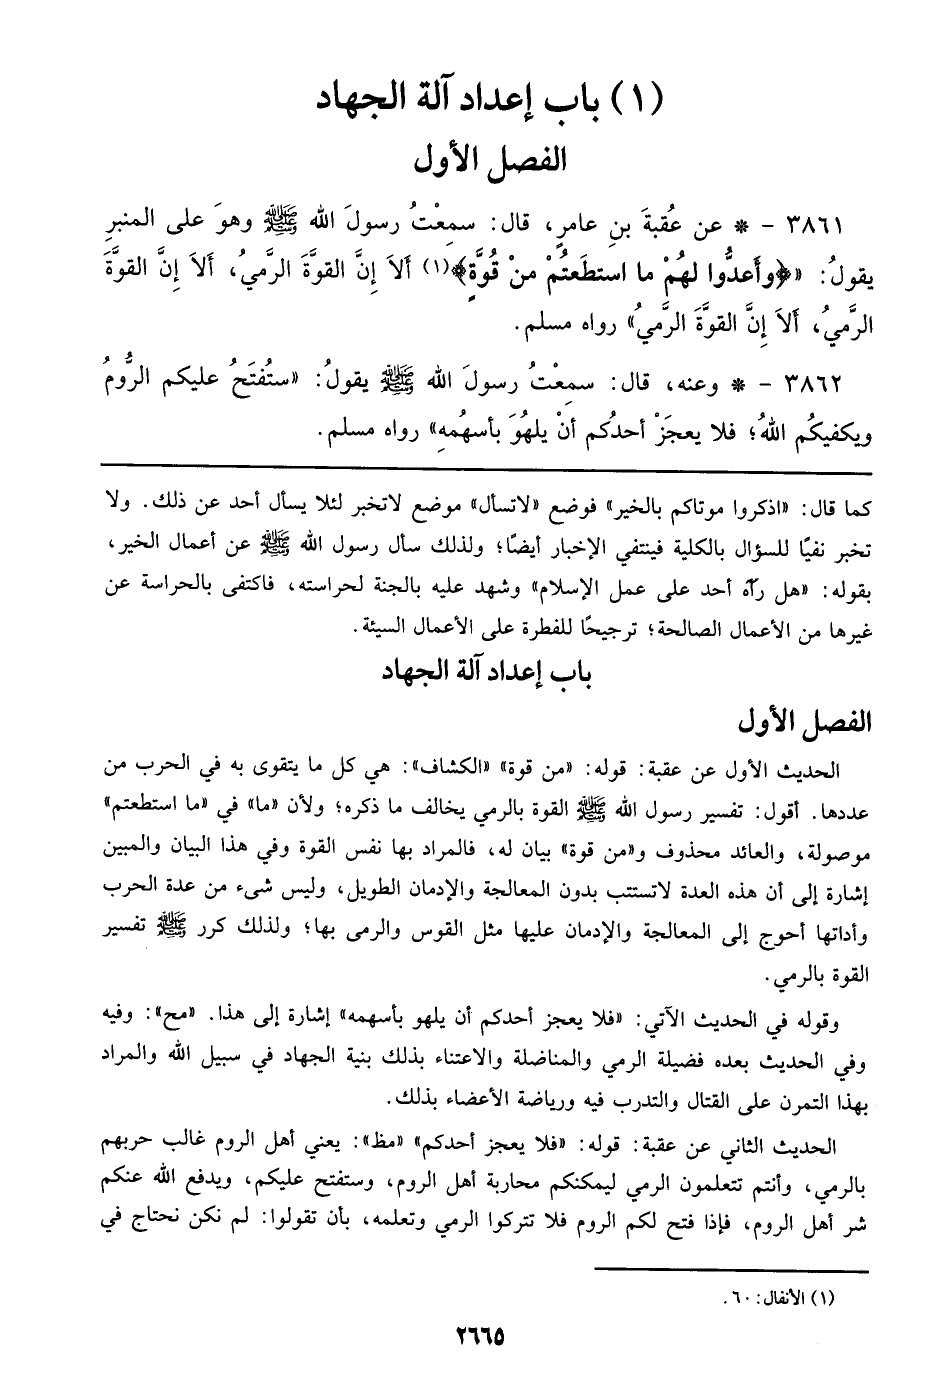 (١) باب إعداد آلة الجهاد
الفصل الأول
٣٨٦١ – * عن عُقبةَ بنِ عامرٍ، قال: سمِعْتُ رسولَ الله ﷺ وهوَ على المنبرِ
يقولُ: «﴿وأَعدُّوا لهُمْ ما استطَعتُمْ منْ قُوَّةٍ﴾(١) ألاَ إِنَّ القوَّةَ الرَّميُ، ألاَ إِنَّ القوَّةَ
الرَّميُ، ألاَ إِنَّ القوَّةَ الرَّميُ» رواه مسلم.
٣٨٦٢ – * وعنه، قال: سمِعْتُ رسولَ الله ﷺ يقولُ: «ستُفتَحُ عليكم الرُّومُ
ويكفيكُم اللهُ؛ فلا يعجَزْ أحدُكم أنْ يلهُوَ بأسهُمهِ» رواه مسلم.
كما قال: «اذكروا موتاكم بالخير» فوضع «لاتسأل» موضع لاتخبر لئلا يسأل أحد عن ذلك. ولا
تخبر نفيًا للسؤال بالكلية فينتفي الإخبار أيضًا؛ ولذلك سأل رسول الله ﷺ عن أعمال الخير،
بقوله: «هل رآه أحد على عمل الإسلام» وشهد عليه بالجنة لحراسته، فاكتفى بالحراسة عن
غيرها من الأعمال الصالحة؛ ترجيحًا للفطرة على الأعمال السيئة.
باب إعداد آلة الجهاد
الفصل الأول
الحديث الأول عن عقبة: قوله: «من قوة» «الكشاف»: هي كل ما يتقوى به في الحرب من
عددها. أقول: تفسير رسول الله ﷺ القوة بالرمي يخالف ما ذكره؛ ولأن «ما» في «ما استطعتم»
موصولة، والعائد محذوف و«من قوة» بيان له، فالمراد بها نفس القوة وفي هذا البيان والمبين
إشارة إلى أن هذه العدة لاتستتب بدون المعالجة والإدمان الطويل، وليس شىء من عدة الحرب
وأداتها أحوج إلى المعالجة والإدمان عليها مثل القوس والرمى بها؛ ولذلك كرر ﷺ تفسير
القوة بالرمي.
وقوله في الحديث الآتي: «فلا يعجز أحدكم أن يلهو بأسهمه» إشارة إلى هذا. «مح»: وفيه
وفي الحديث بعده فضيلة الرمي والمناضلة والاعتناء بذلك بنية الجهاد في سبيل الله والمراد
بهذا التمرن على القتال والتدرب فيه ورياضة الأعضاء بذلك.
الحديث الثاني عن عقبة: قوله: «فلا يعجز أحدكم» «مظ»: يعني أهل الروم غالب حربهم
بالرمي، وأنتم تتعلمون الرمي ليمكنكم محاربة أهل الروم، وستفتح عليكم، ويدفع الله عنكم
شر أهل الروم، فإذا فتح لكم الروم فلا تتركوا الرمي وتعلمه، بأن تقولوا: لم نكن نحتاج في
(١) الأنفال: ٦٠.
٢٦٦٥